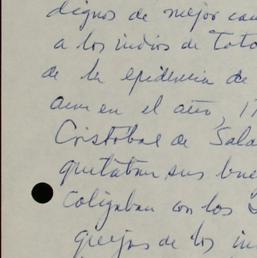 dignos de mejor cau
a los indios de Toto
de la epidemia de
aun en el año, 17
Cristobal de Sala
quitaban sus bue
coligaban con los
quejas de los in